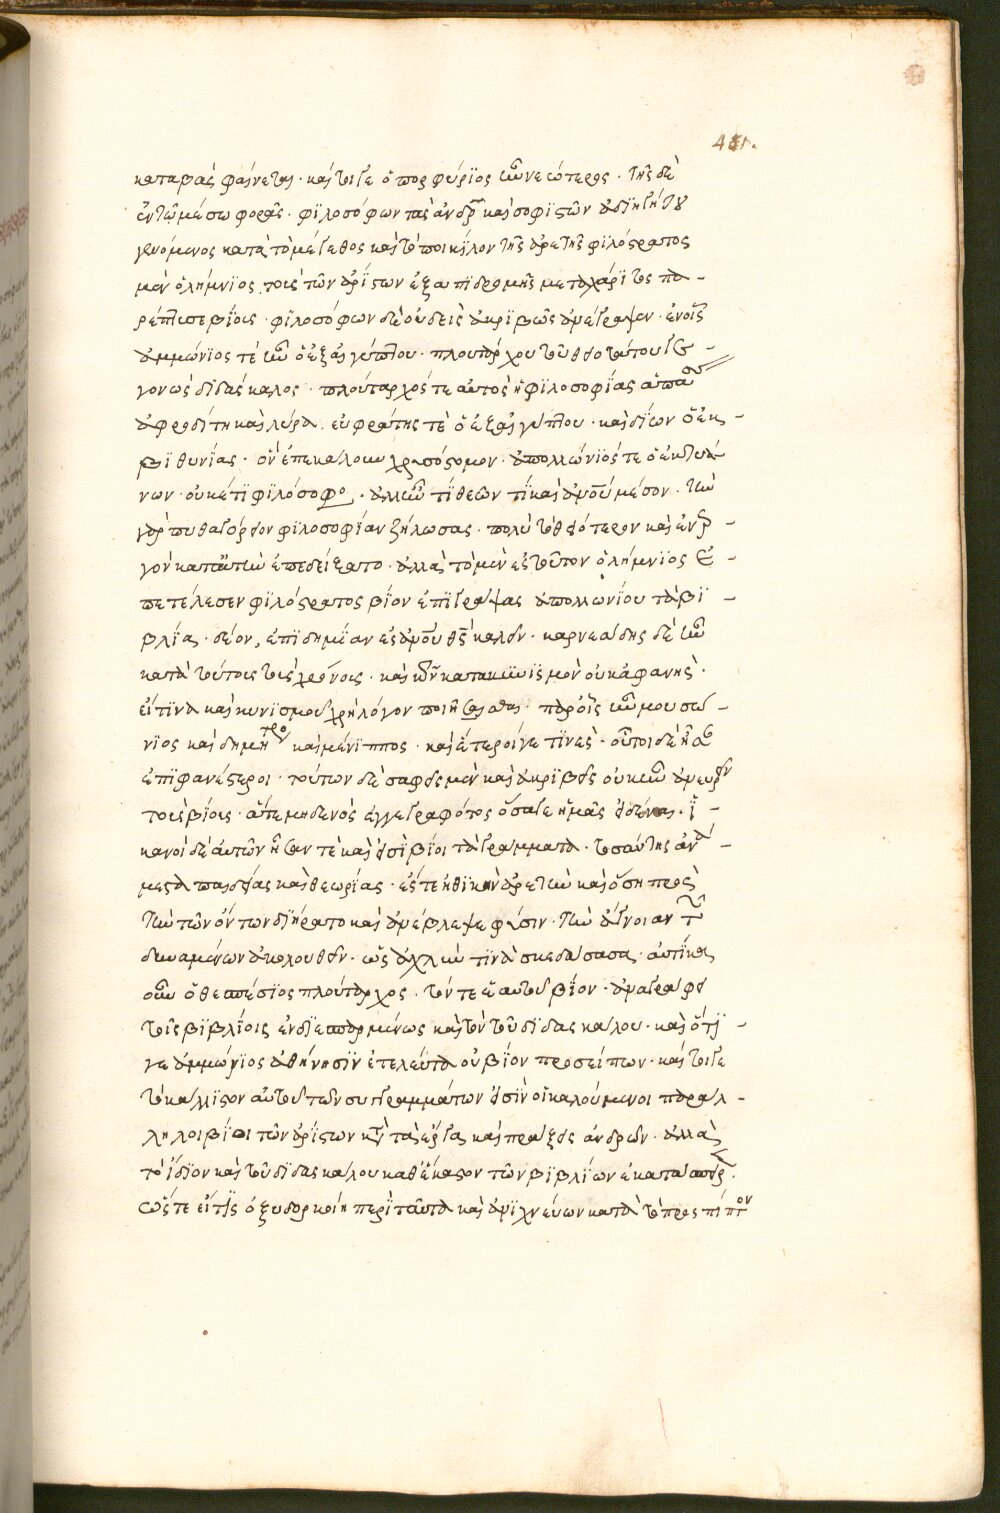 481.
καταβὰς φαίνεται· καίτοιγε ὁ πορφύριος ἦν νεώτερος· τῆς δὲ
ἐν τῶ μέσω φορᾶς· φιλοσόφων τὰς ἀνδρ καὶ σοφιστῶν
γενόμενος κατὰ τὸ μέγεθος καὶ τὸ ποικίλον τῆς ἀρετῆς φιλόστρατος
μὲν ὁ λήμνιος τοὺς τῶν ἀρίστων ἐξ ἐπιδρομῆς μετὰ χάριτος πα-
ρέπλισε βίους· φιλοσόφων δὲ οὐδεὶς ἀκριβῶς ἀνέγραψεν· ἐν οἷς
ἀμμώνιος τὲ ἦν ὁ ἐξ αἰγύπτου· πλουτάρχου τοῦ θειοτάτου γε-
γονὼς διδάσκαλος· πλούταρχός τε αὐτὸς ἡ φιλοσοφίας ἁπάσης
ἀφροδίτη καὶ λύρα· εὐφράτης τὲ ὁ ἐξ αἰγύπτου· καὶ δίων ὁ ἐκ-
βιθυνίας· ὃν ἐπεκάλουν χρυσόστομον· ἀπολλώνιός τε ὁ ἐκ τυά
νων· οὐκέτι φιλόσοφο· ἀλλ' ἦν τί θεῶν τί καὶ ἀνοῦ μέσον· τὴν
γὰρ πυθαγόρειον φιλοσοφίαν ζηλώσας· πολὺ τὸ θειότερον καὶ ἐνερ-
γὸν κατ' αὐτὴν ἐπεδείξατο· ἀλλὰ τὸ μὲν ἐς τοῦτον ὁ λήμνιος ἐ-
πετέλεσεν φιλόστρατος βίον ἐπιγράψας ἀπολλωνίου τὰ βι-
βλία· δέον, ἐπιδημίαν ἐς ἀνοῦς θῦ καλεῖν· καρνεάδης δὲ ἦν
κατὰ τούτους τοὺς χρόνους· καὶ τῶν κατὰ κυνισμὸν οὐκ ἀφανὴς·
εἴ τινα καὶ κυνισμοῦ χρὴ λόγον ποιῆσασθαι· παρ' οἷς ἦν μουσώ-
νιος καὶ δημήτριος καὶ μένιππος· καὶ ἕτεροί γε τινες· οὗτοι δὲ ἦσαν
ἐπιφανέστεροι· τούτων δὲ σαφεῖς μὲν καὶ ἀκριβεῖς οὐκ ἦν ἀνευρεῖν
τοὺς βίους· ἅτε μηδενὸς ἐγγεγραφότος ὅσα γε ἡμᾶς εἰδέναι· ἱ-
κανοὶ δὲ αὐτῶν ἦσαν τὲ καὶ εἰσὶ βίοι τὰ γράμματα· τοσαύτης ἀνά-
μεστα παιδείας καὶ θεωρίας· ἔς τε ἠθικὴν ἀρετὴν καὶ ὅση πρὸς
τὴν τῶν ὄντων διήρατο καὶ ἀνέβλεψε φύσιν· τὴν ἄγνοιαν τῶν
δυναμένων ἀκολουθεῖν· ὡς ἀχλὺν τινὰ σκεδάσασα· αὐτίκα
οὖν ὁ θεσπέσιος πλούταρχος· τόν τε ἑαυτοῦ βίον· ἀναγράφει
τοῖς βιβλίοις ἐνδιεσπαρμένως καὶ τὸν τοῦ διδασκάλου· καὶ ὅτι
γε ἀμμώνιος ἀθήνησιν ἐτελεύτα οὐ βίον προσείπων· καίτοιγε
τὸ κάλλιστον αὐτοῦ τῶν συγγραμμάτων εἰσὶν οἱ καλούμενοι παράλ-
ληλοι βίοι τῶν ἀρίστων κατὰ τὰς ἔργα καὶ πράξεις ἀνδρῶν· ἀλλὰ
τὸ ἴδιον καὶ τοῦ διδασκάλου καθ' ἕκαστον τῶν βιβλίων ἐκατασπειρ·
ὥστε εἴ τις ὀξυδορκοίη περὶ ταῦτα καὶ ἀνιχνεύων κατὰ τὸ προσπίπτον